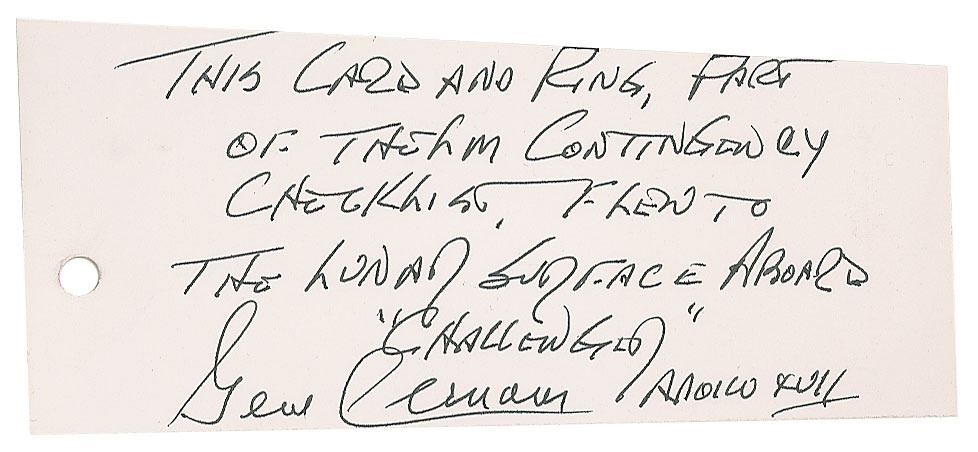 THIS CARD AND RING, PART
OF THE LM CONTINGENCY
CHECKLIST, FLEW TO
THE LUNAR SURFACE ABOARD
"CHALLENGER"
Gene Cernan APOLLO XVII